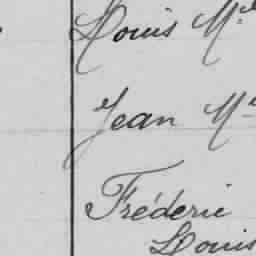 Louis M.el
Jean M
Fréderic
Louis